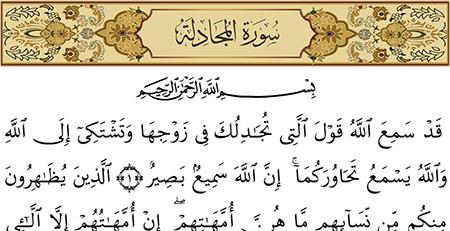 سُورَةُ المُجَادلَةِ
بِسْمِ اللَّهِ الرَّحْمَٰنِ الرَّحِيمِ
قَدْ سَمِعَ اللَّهُ قَوْلَ الَّتِي تُجَادِلُكَ فِي زَوْجِهَا وَتَشْتَكِيٓ إِلَى اللَّهِ
وَاللَّهُ يَسْمَعُ تَحَاوُرَكُمَآ ۚ إِنَّ اللَّهَ سَمِيعٌۢ بَصِيرٌ ﴿١﴾ الَّذِينَ يُظَٰهِرُونَ
مِنكُم مِّن نِّسَآئِهِم مَّا هُنَّ أُمَّهَٰتِهِمْ ۖ إِنْ أُمَّهَٰتُهُمْ إِلَّا الَّٰٓـِٔي